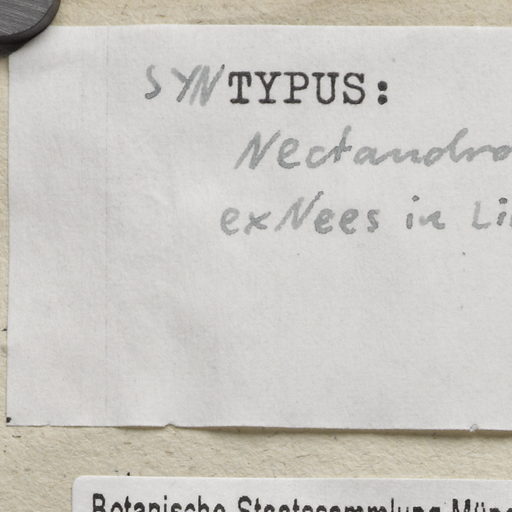 SYNTYPUS:
Nectandra
ex Nees in Li
Botanische Staatssammlung Mün